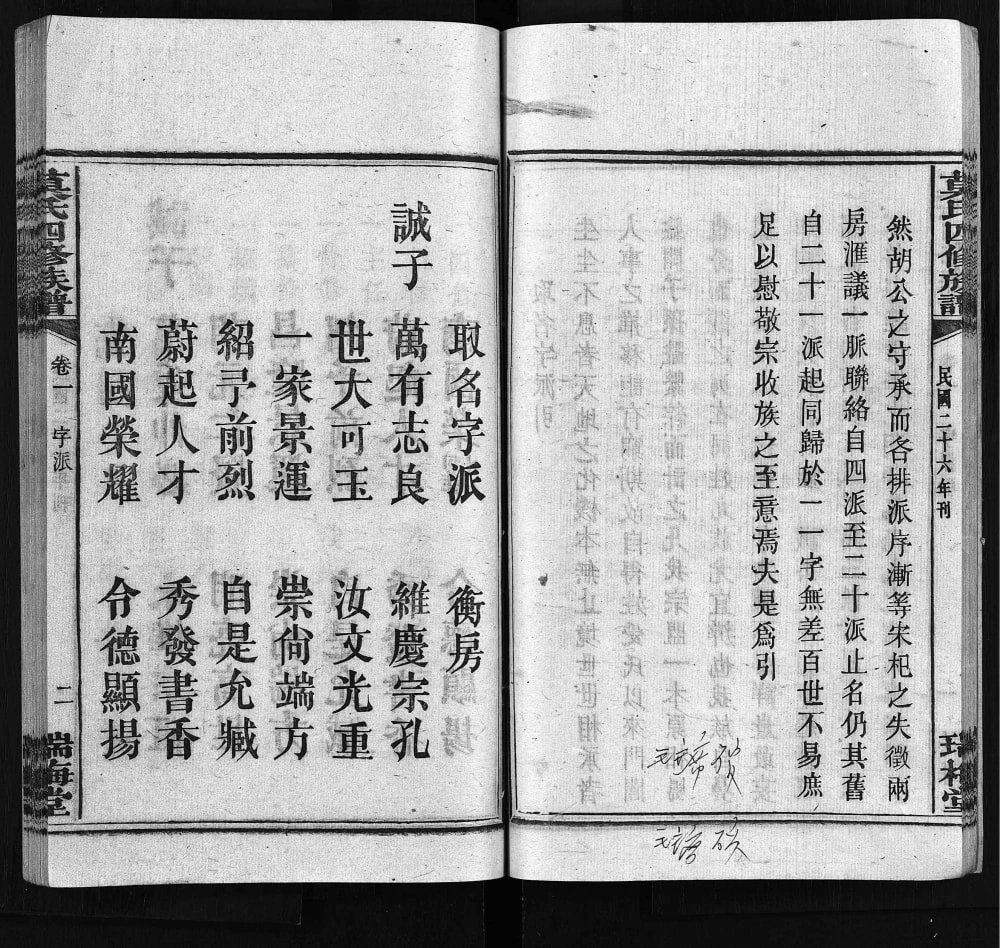 莫氏四修族譜
民國二十六年刊
然胡公之守承而各排派序漸等宋杞之失徵兩
房滙議一脈聯絡自四派至二十派止名仍其舊
自二十一派起同歸於一一字無差百世不易庶
足以慰敬宗收族之至意焉夫是爲引
取名字派 衡房
誠子 萬有志良 維慶宗孔
世大可玉 汝文光重
一家景運 崇尙端方
紹㝷前烈 自是允臧
蔚起人才 秀發書香
南國榮耀 令德顯揚
莫氏四修族譜
卷一 字派 二